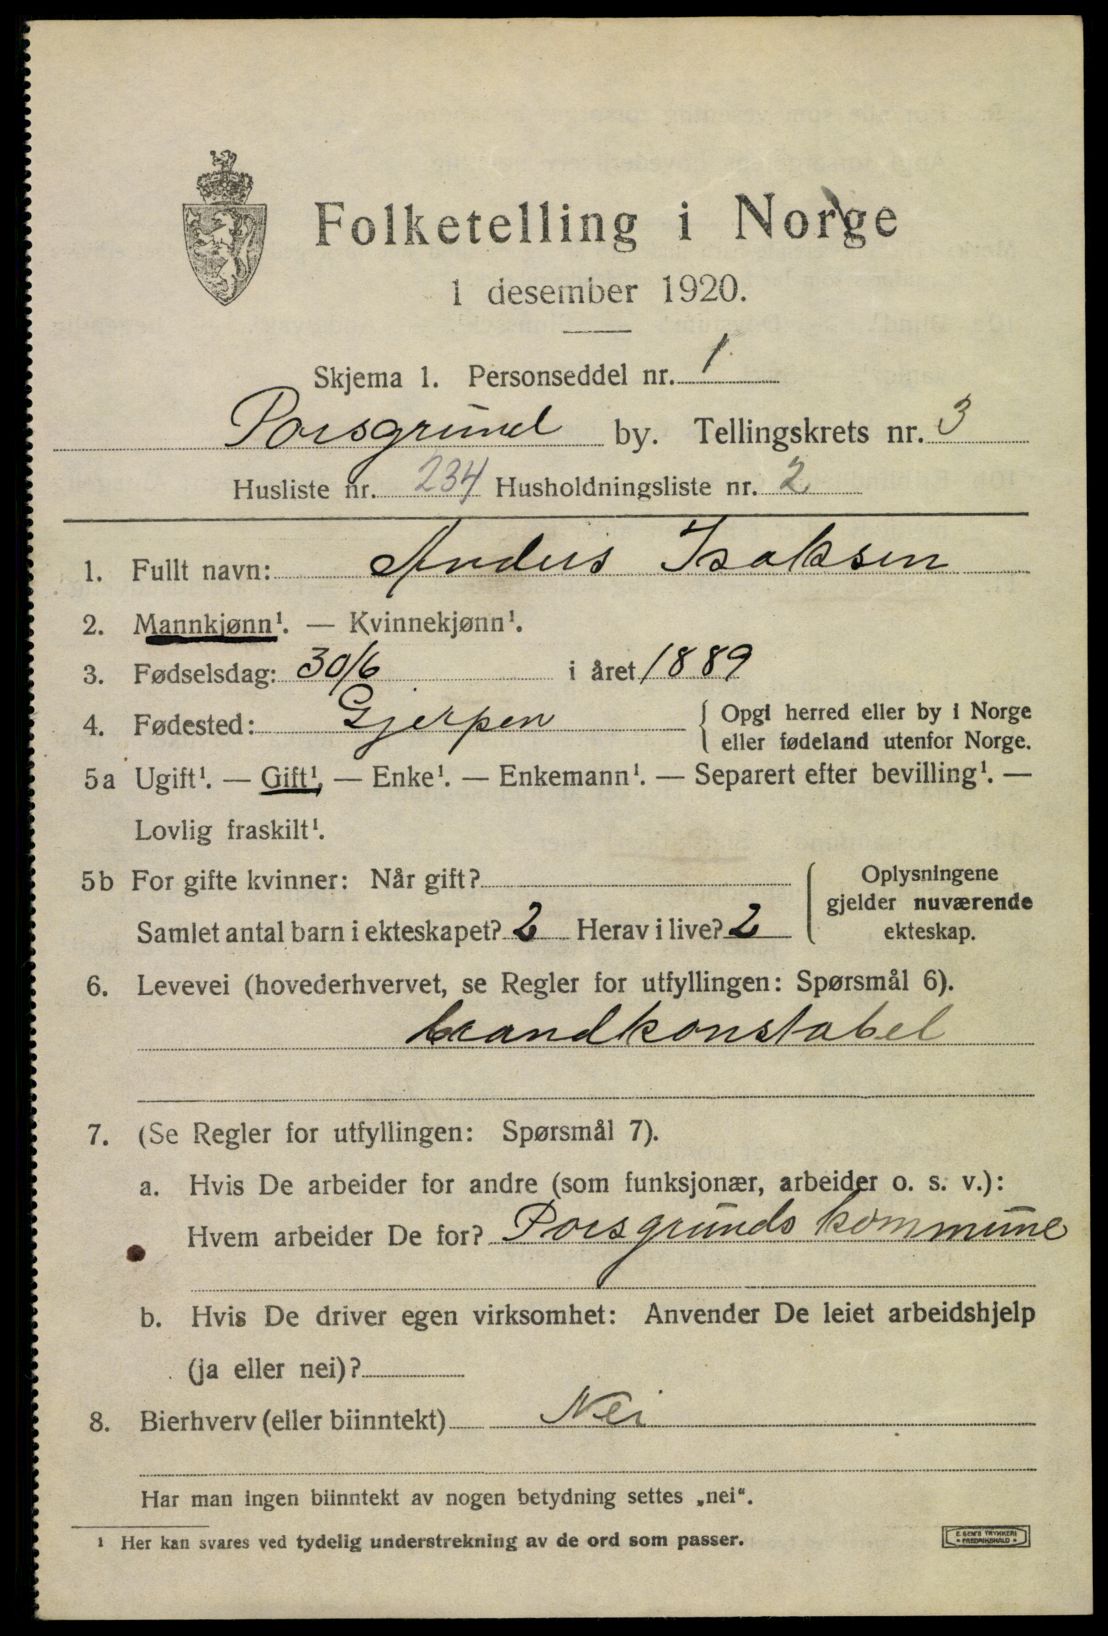 Folketelling i Norge
1 desember 1920.
Skjema 1. Personseddel nr. 1
Porsgrund by. Tellingskrets nr. 3
Husliste nr. 234 Husholdningsliste nr. 2
1. Fullt navn: Anders Isaksen
2. Mannkjønn¹. — Kvinnekjønn¹.
3. Fødselsdag: 30/6 i året 1889
4. Fødested: Gjerpen { Opgi herred eller by i Norge
eller fødeland utenfor Norge.
5a Ugift¹. — Gift¹, — Enke¹. — Enkemann¹. — Separert efter bevilling¹. —
Lovlig fraskilt¹.
5b For gifte kvinner: Når gift?
Samlet antal barn i ekteskapet? 2 Herav i live? 2
Oplysningene
gjelder nuværende
ekteskap.
6. Levevei (hovederhvervet, se Regler for utfyllingen: Spørsmål 6).
brandkonstabel
7. (Se Regler for utfyllingen: Spørsmål 7).
a. Hvis De arbeider for andre (som funksjonær, arbeider o. s. v.):
Hvem arbeider De for? Porsgrunds kommune
b. Hvis De driver egen virksomhet: Anvender De leiet arbeidshjelp
(ja eller nei)?
8. Bierhverv (eller biinntekt) Nei
Har man ingen biinntekt av nogen betydning settes „nei“.
¹ Her kan svares ved tydelig understrekning av de ord som passer.
E. SEM'S TRYKKERI
FREDRIKSHALD